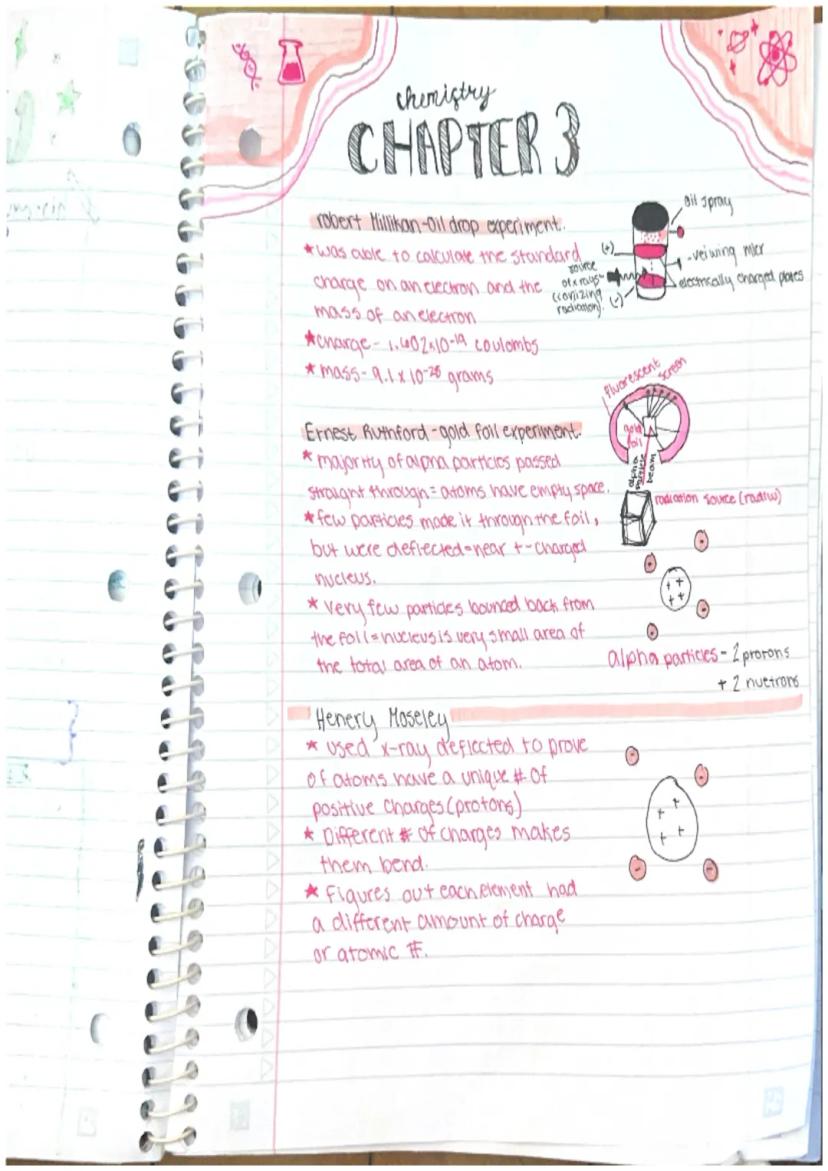 chemistry
CHAPTER 3
robert Millikan-Oil drop experiment.
*was able to calculate the standard
charge on an electron and the
mass of an electron
*charge- 1.602x10-19 coulombs
*mass- 9.1 x 10-28 grams
oil spray
(+)
-veiwing micr
source
of x rays
(ionizing
radiation).
(-)
electrically charged plates
Ernest Ruthford-gold foil experiment.
* majority of alpha particles passed
straight through= atoms have empty space.
*few particles made it through the foil,
but were deflected=near +-charged
nucleus.
* Very few particles bounced back from
the foil=nucleus is very small area of
the total area of an atom.
fluorescent
screen
gold
foil
alpha
particle
beam
radiation source (radium)
- -
+ +
+ +
- -
alpha particles- 2 protons
+ 2 nuetrons
Henery Moseley
* used x-ray deflected to prove
of atoms have a unique # of
positive charges(protons)
* Different # of charges makes
them bend.
* Figures out each element had
a different amount of charge
or atomic #.
- -
+ +
+ +
- -